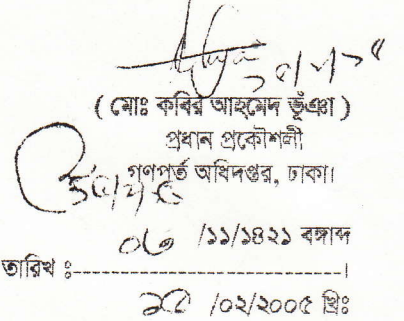 ( মোঃ কবির আহমেদ ভূঁঞা )
প্রধান প্রকৌশলী
গণপূর্ত অধিদপ্তর, ঢাকা।
/১১/১৪২১ বঙ্গাব্দ
তারিখ ঃ-----------------------------।
/০২/২০০৫ খ্রিঃ